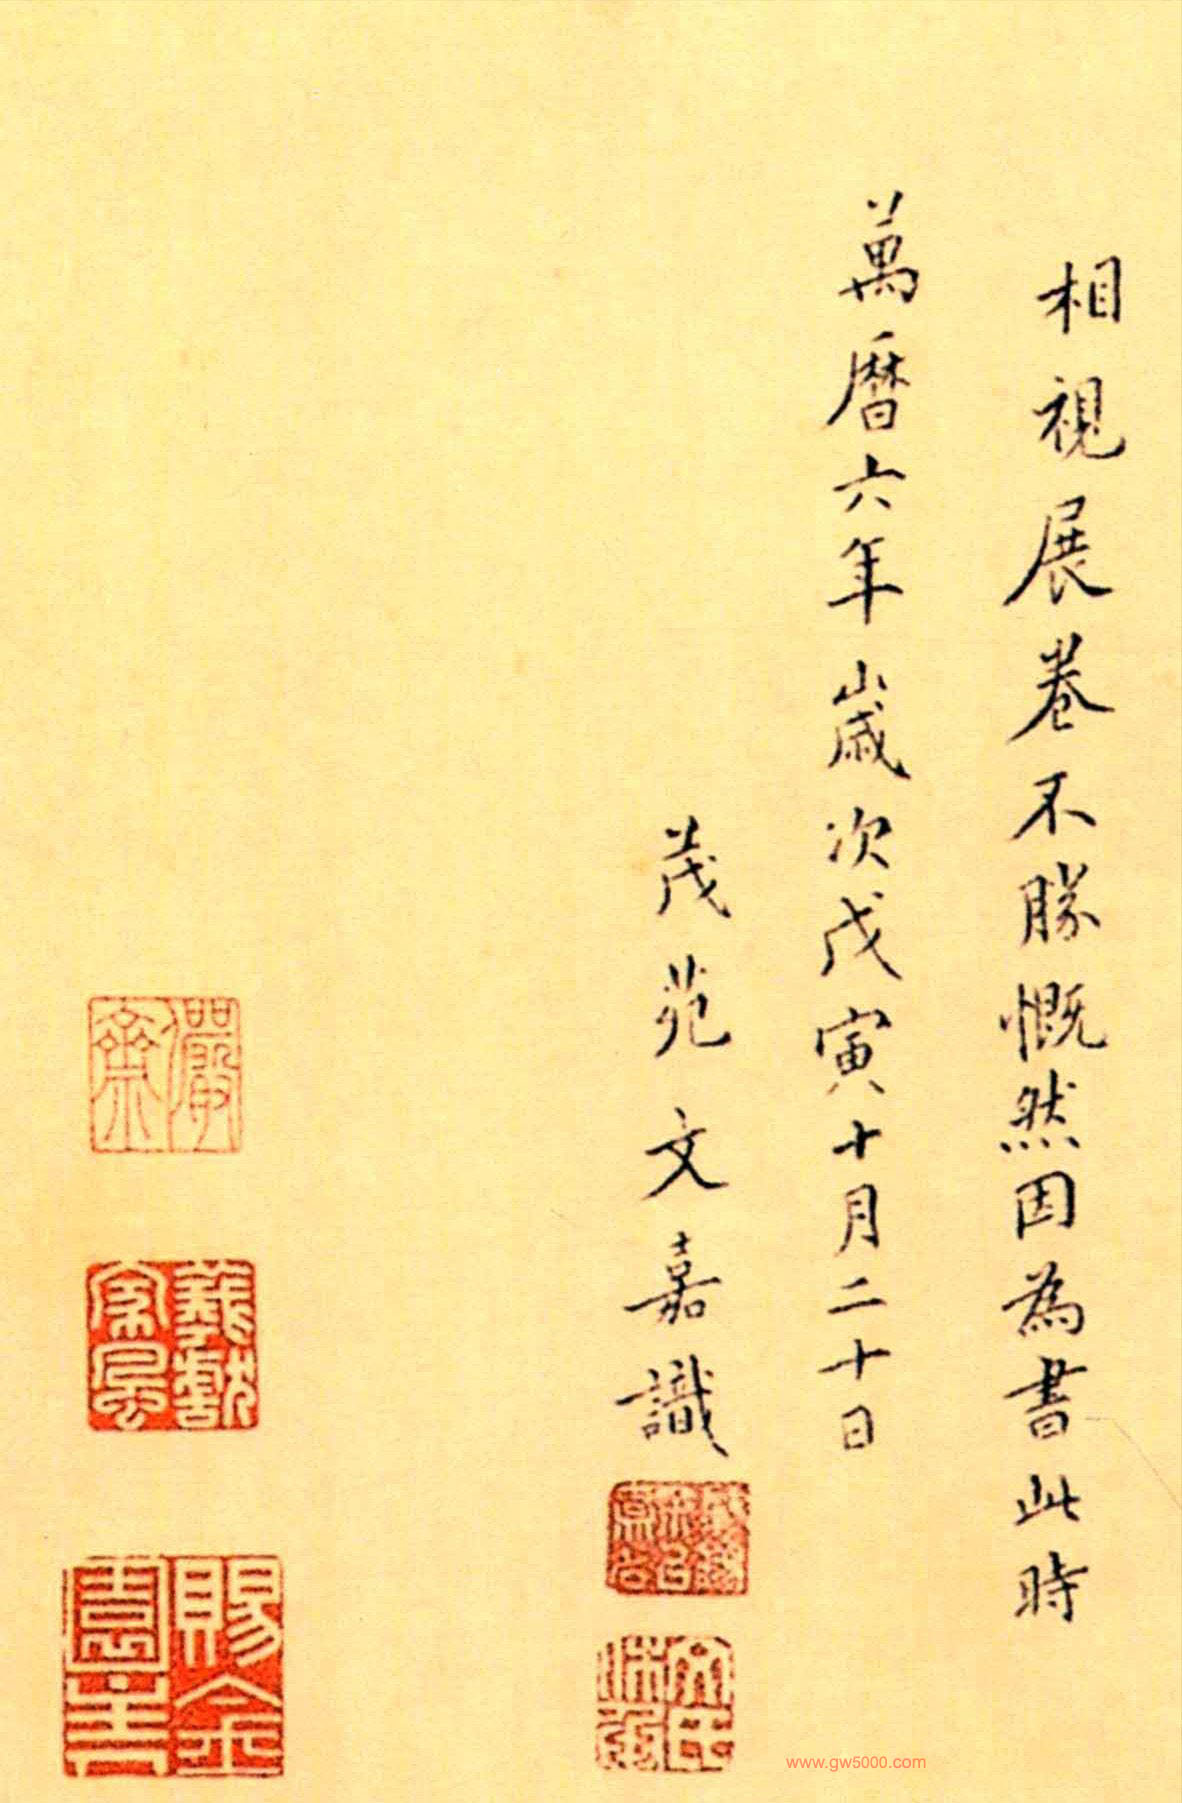 相視展卷不勝慨然因為書此時
萬曆六年歲次戊寅十月二十日
茂苑文嘉識
儼齋
賜金
www.gw5000.com